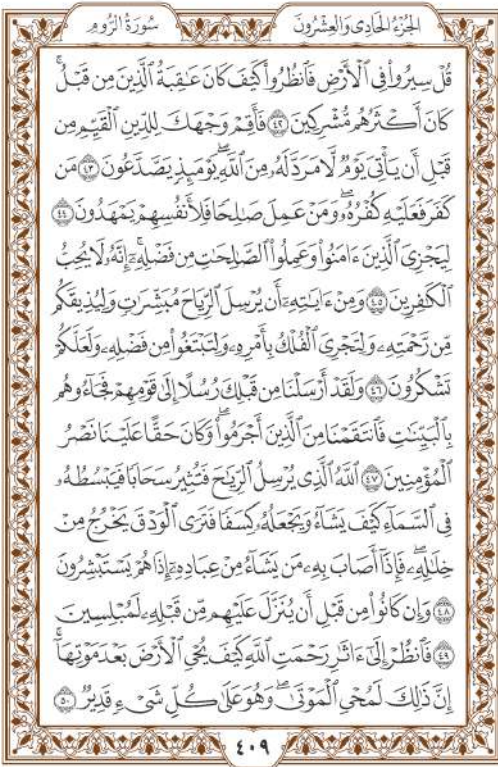 الجُزْءُ الحَادِى وَالعِشْرُونَ سُورَةُ الرُّومِ
قُلْ سِيرُوا۟ فِى ٱلْأَرْضِ فَٱنظُرُوا۟ كَيْفَ كَانَ عَـٰقِبَةُ ٱلَّذِينَ مِن قَبْلُ ۚ
كَانَ أَكْثَرُهُم مُّشْرِكِينَ ٤٢ فَأَقِمْ وَجْهَكَ لِلدِّينِ ٱلْقَيِّمِ مِن
قَبْلِ أَن يَأْتِىَ يَوْمٌ لَّا مَرَدَّ لَهُۥ مِنَ ٱللَّهِ ۖ يَوْمَئِذٍ يَصَّدَّعُونَ ٤٣ مَن
كَفَرَ فَعَلَيْهِ كُفْرُهُۥ ۖ وَمَنْ عَمِلَ صَـٰلِحًا فَلِأَنفُسِهِمْ يَمْهَدُونَ ٤٤
لِيَجْزِىَ ٱلَّذِينَ ءَامَنُوا۟ وَعَمِلُوا۟ ٱلصَّـٰلِحَـٰتِ مِن فَضْلِهِۦٓ ۚ إِنَّهُۥ لَا يُحِبُّ
ٱلْكَـٰفِرِينَ ٤٥ وَمِنْ ءَايَـٰتِهِۦٓ أَن يُرْسِلَ ٱلرِّيَاحَ مُبَشِّرَٰتٍ وَلِيُذِيقَكُم
مِّن رَّحْمَتِهِۦ وَلِتَجْرِىَ ٱلْفُلْكُ بِأَمْرِهِۦ وَلِتَبْتَغُوا۟ مِن فَضْلِهِۦ وَلَعَلَّكُمْ
تَشْكُرُونَ ٤٦ وَلَقَدْ أَرْسَلْنَا مِن قَبْلِكَ رُسُلًا إِلَىٰ قَوْمِهِمْ فَجَآءُوهُم
بِٱلْبَيِّنَـٰتِ فَٱنتَقَمْنَا مِنَ ٱلَّذِينَ أَجْرَمُوا۟ ۖ وَكَانَ حَقًّا عَلَيْنَا نَصْرُ
ٱلْمُؤْمِنِينَ ٤٧ ٱللَّهُ ٱلَّذِى يُرْسِلُ ٱلرِّيَـٰحَ فَتُثِيرُ سَحَابًا فَيَبْسُطُهُۥ
فِى ٱلسَّمَآءِ كَيْفَ يَشَآءُ وَيَجْعَلُهُۥ كِسَفًا فَتَرَى ٱلْوَدْقَ يَخْرُجُ مِنْ
خِلَـٰلِهِۦ ۖ فَإِذَآ أَصَابَ بِهِۦ مَن يَشَآءُ مِنْ عِبَادِهِۦٓ إِذَا هُمْ يَسْتَبْشِرُونَ
٤٨ وَإِن كَانُوا۟ مِن قَبْلِ أَن يُنَزَّلَ عَلَيْهِم مِّن قَبْلِهِۦ لَمُبْلِسِينَ
٤٩ فَٱنظُرْ إِلَىٰٓ ءَاثَـٰرِ رَحْمَتِ ٱللَّهِ كَيْفَ يُحْىِ ٱلْأَرْضَ بَعْدَ مَوْتِهَآ ۚ
إِنَّ ذَٰلِكَ لَمُحْىِ ٱلْمَوْتَىٰ ۖ وَهُوَ عَلَىٰ كُلِّ شَىْءٍ قَدِيرٌ ٥٠
٤٠٩